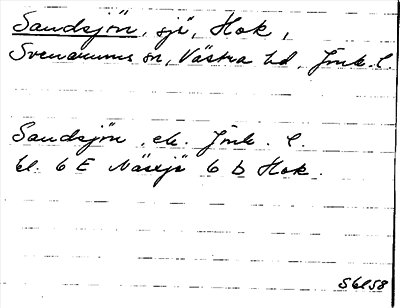 Sandsjön, sjö, Hok,
Svenarums sn, Västra hd, Jönk. l.
Sandsjön, ek. Jönk. l.
bl. 6 E Nässjö 6 b Hok.